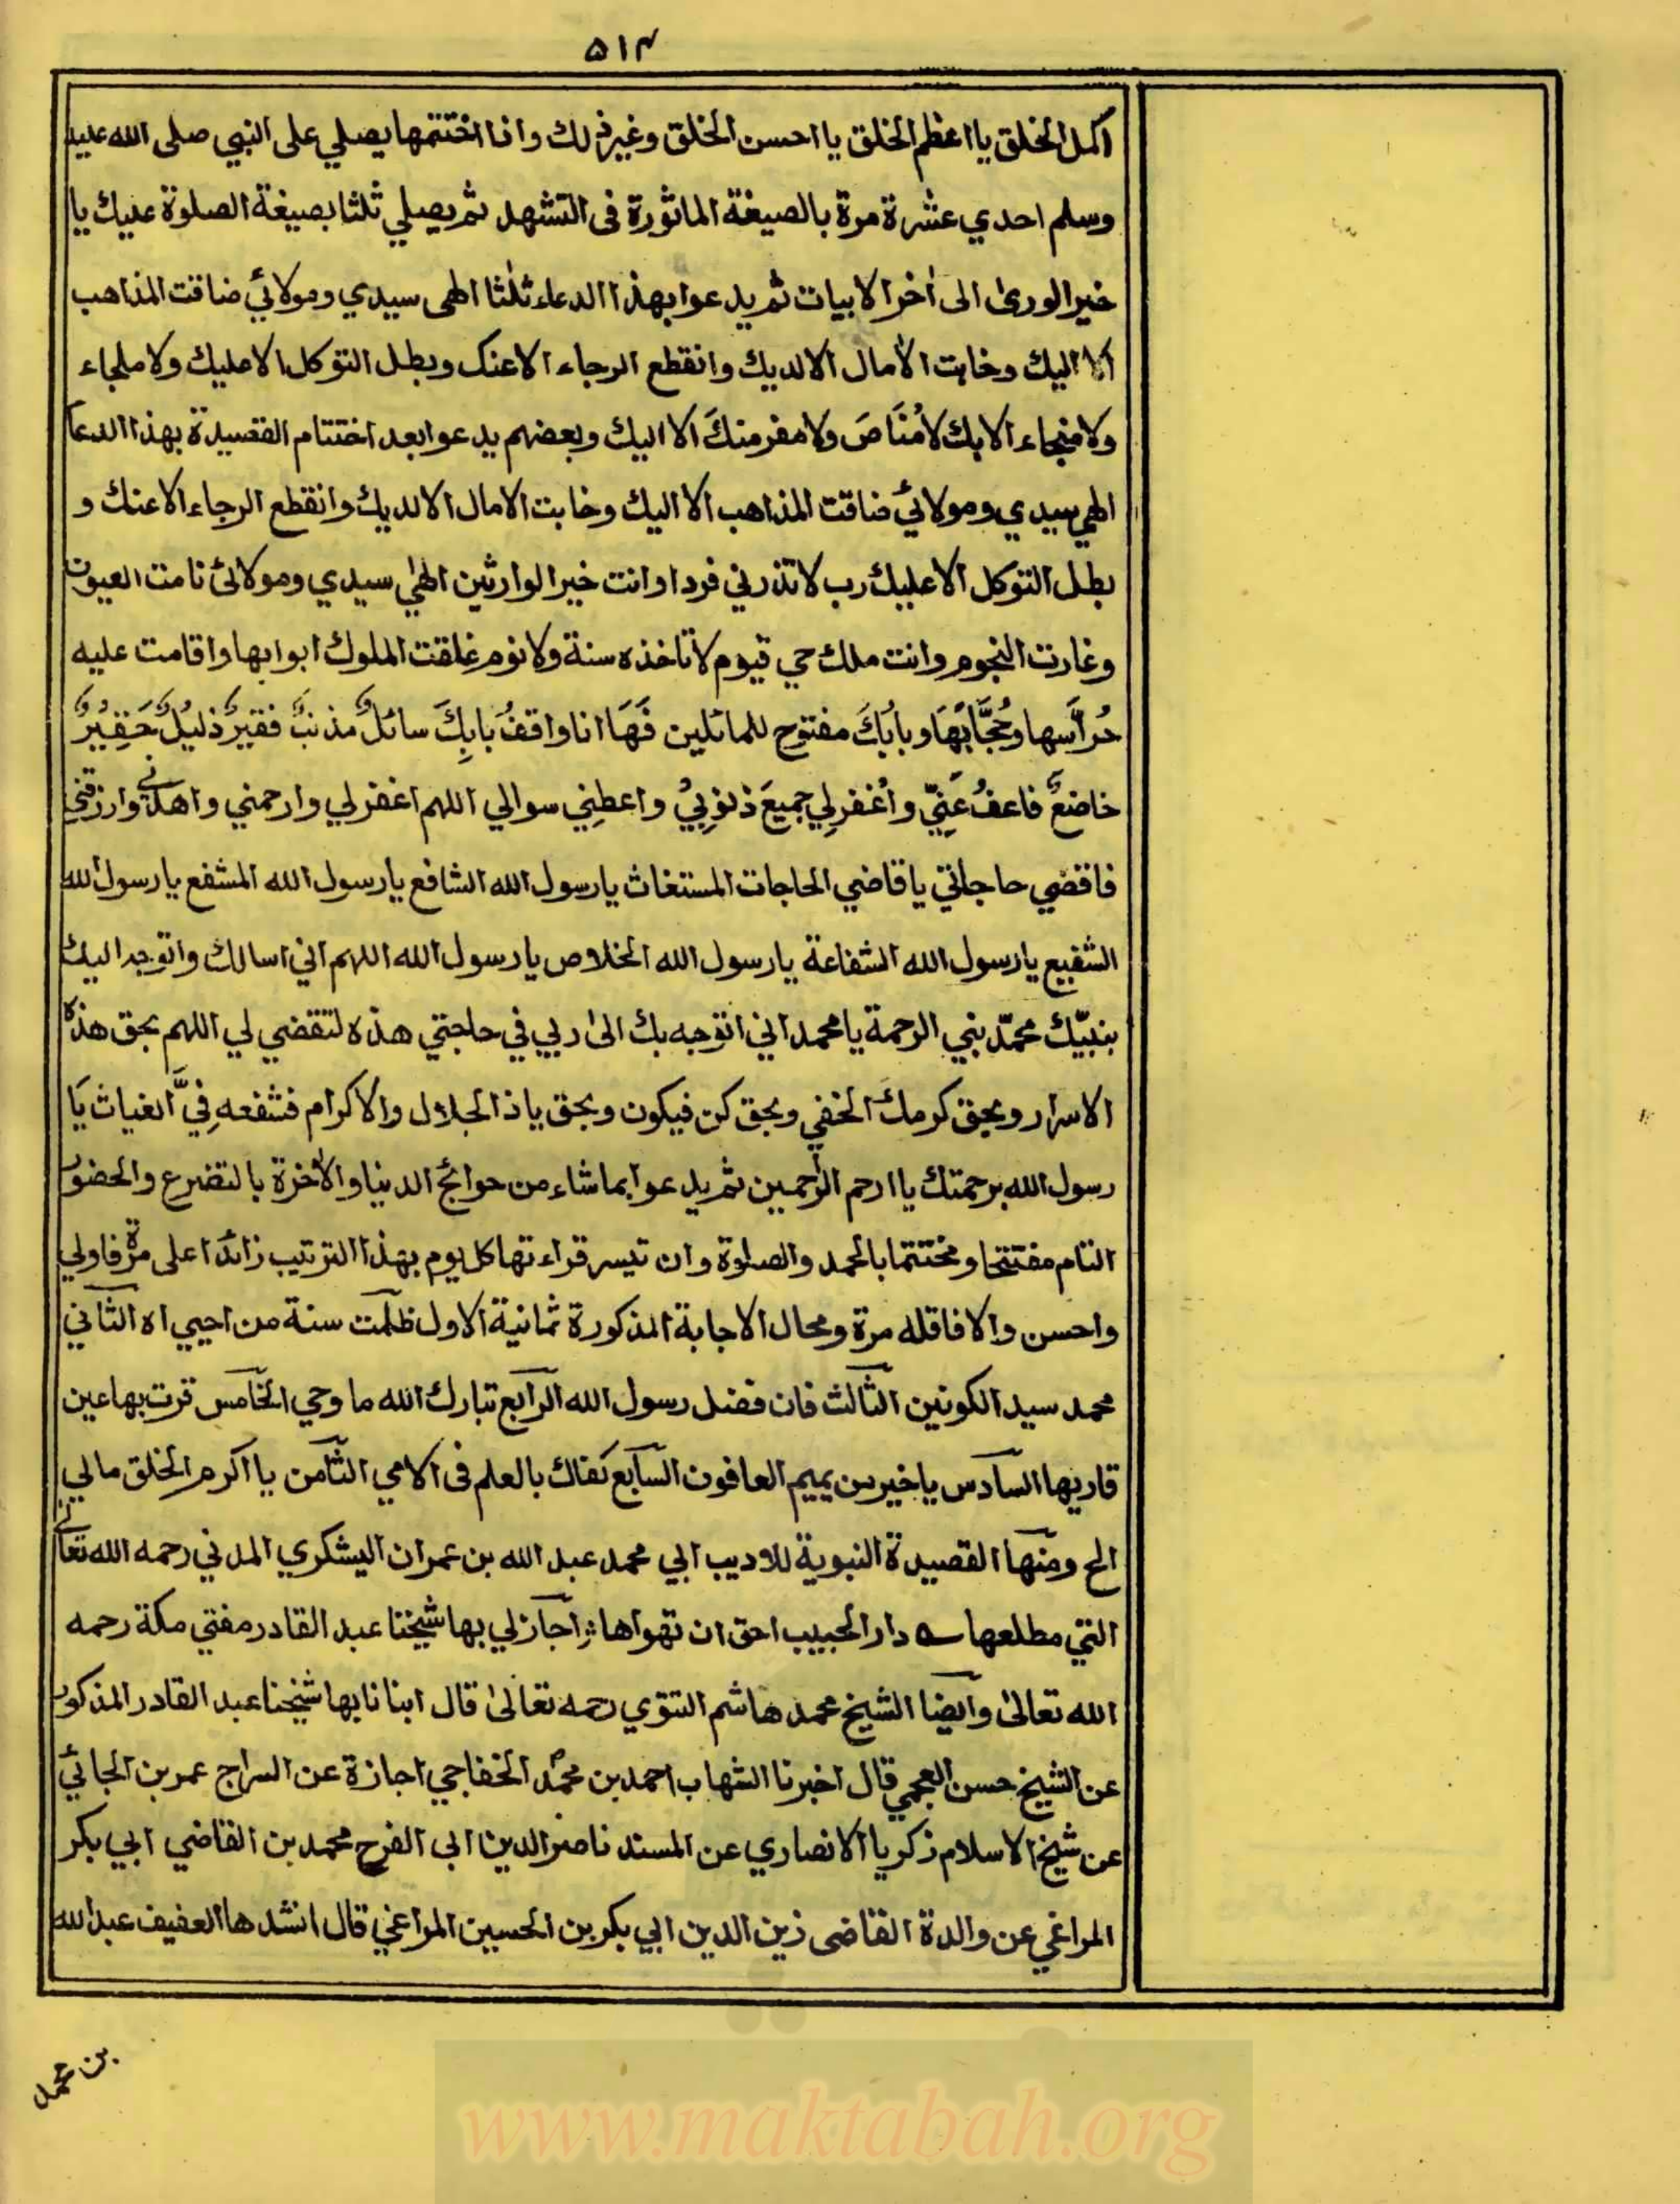 ٥١٣
اكمل الخلق يا اعظم الخلق يا احسن الخلق وغير ذلك واذا اختتمها يصلي على النبي صلى الله عليه
وسلم احدي عشرة مرة بالصيغة الماثورة فى التشهد ثم يصلي ثلثا بصيغة الصلوة عليك يا
خير الورى الى اٰخر الابيات ثم يدعوا بهذا الدعاء ثلٰثا الهى سيدي ومولائي ضاقت المذاهب
الا اليك وخابت الاٰمال الا لديك وانقطع الرجاء الا عنك وبطل التوكل الا عليك ولا ملجاء
ولا منجاء الا بك لا مُنَاصَ ولا مفر منكَ الا اليك وبعضهم يدعوا بعد اختتام القصيدة بهذا الدعا
الهي سيدي ومولائي ضاقت المذاهب الا اليك وخابت الامال الا لديك وانقطع الرجاء الا عنك و
بطل التوكل الا عليك رب لا تذرني فردا وانت خير الوارثين الهٰي سيدي ومولائ نامت العيون
وغارت النجوم وانت ملك حي قيوم لا تاخذه سنة ولا نوم غلقت الملوك ابوابها واقامت عليه
حُرَّاسها وحُجَّابَهَا وبابُكَ مفتوح للسائلين فَهَا انا واقفُ بابِكَ سائلٌ مذنبٌ فقيرٌ ذليلٌ حَقِيرٌ
خاضعٌ فاعفُ عَنِّي واغفر لِي جميعَ ذنوبِيْ واعطِني سوالي اللهم اغفر لي وارحمني واهدني وارزقني
فاقضي حاجاتي يا قاضي الحاجات المستغاث يا رسول الله الشافع يا رسول الله المشفع يا رسول الله
الشفيع يا رسول الله الشفاعة يا رسول الله الخلاص يا رسول الله اللهم اني اسالك واتوجه اليك
بنبيّك محمّد نبي الرحمة يا محمد اني اتوجه بك الى ربي في حاجتي هذه لتقضي لي اللهم بحق هذه
الاسرار وبحق كرمك الخفي وبحق كن فيكون وبحق يا ذا الجلال والاكرام فشفعه فِيَّ الغياث يَا
رسول الله برحمتك يا ارحم الرّٰحمين ثم يدعوا بما شاء من حوائج الدينا والاٰخرة بالتضرع والحضور
التام مفتتحا ومختتما بالحمد والصلوة وان تيسر قراءتها كل يوم بهذا الترتيب زائدا على مرة فاولي
واحسن والا فاقله مرة ومحال الاجابة المذكورة ثمانية الاول ظلمت سنة من احيي اه الثاني
محمد سيد الكونين الثالث فان فضل رسول الله الرابع تبارك الله ما وحي الخامس قرت بها عين
قاريها السادس يا خير من يمم العافون السابع كفاك بالعلم فى الامي الثامن يا اكرم الخلق مالي
الح ومنها القصيدة النبوية للاديب ابي محمد عبد الله بن عمران اليشكري المدني رحمه الله تعالى
التي مطلعها دار الحبيب احق ان تهواها اجاز لي بها شيخنا عبد القادر مفتي مكة رحمه
الله تعالىٰ وايضا الشيخ محمد هاشم التتوي رحمه تعالىٰ قال انبانا بها شيخنا عبد القادر المذكور
عن الشيخ حسن العجمي قال اخبرنا الشهاب احمد بن محمد الخفاجي اجازة عن السراج عمر بن الجائي
عن شيخ الاسلام زكريا الانصاري عن المسند ناصر الدين ابى الفرج محمد بن القاضي ابي بكر
المراغي عن والدة القاضى زين الدين ابي بكر بن الحسين المراغي قال انشدها العفيف عبد الله
بن محمد
www.maktabah.org